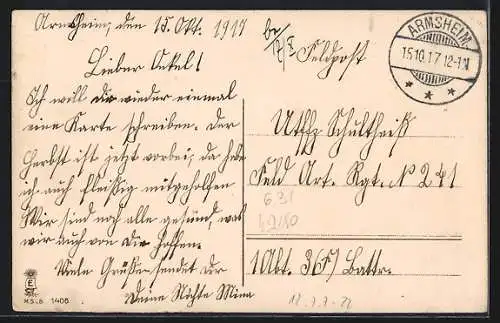 Armsheim, den 15. Okt. 1917
Lieber Onkel!
Ich will dir wieder einmal
eine Karte schreiben. Der
Herbst ist jetzt vorbei, da habe
ich auch fleißig mitgeholfen
Wir sind noch alle gesund, was
wir auch von Dir hoffen.
Viele Grüße sendet dir
Deine Nichte Mina
Feldpost
ARMSHEIM
15.10.17.12-1N
* * *
Utffz Schultheiß
Feld Art. Rgt. N 241
1 Abt. 3 Battr.
E
ST
M.S.i.B. 1406